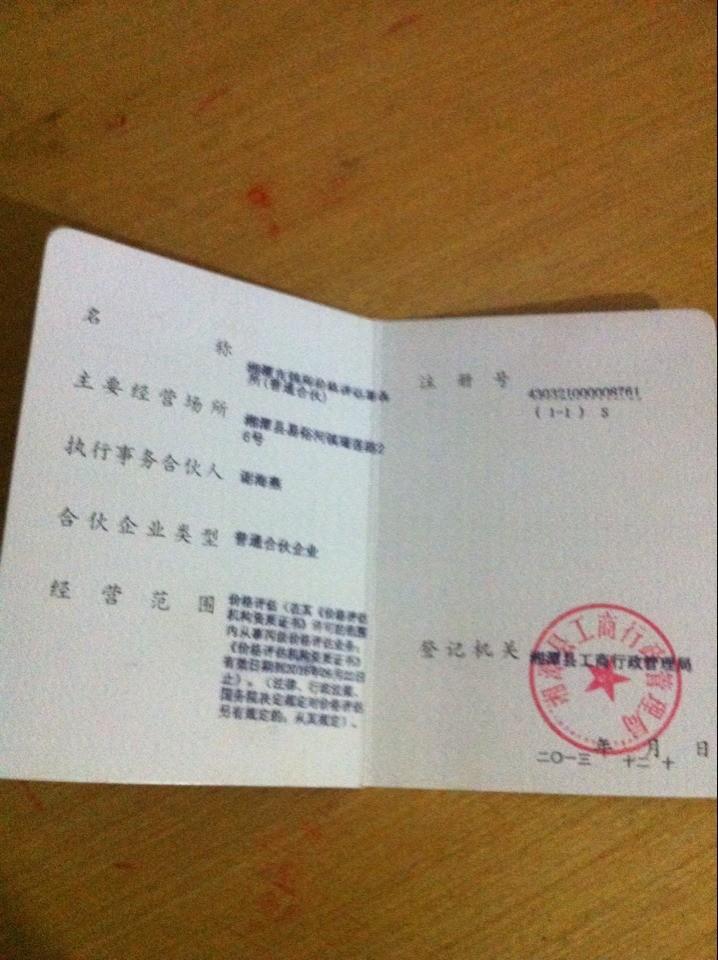 名 称
所(普通合伙)
主要经营场所
湘潭县易俗河镇莲路2
6号
执行事务合伙人
谢海燕
合伙企业类型
普通合伙企业
经营范围
价格评估(在其《价格评估
机构资质证书》许可的范围
内从事丙级价格评估业务;
《价格评估机构资质证书》
有效日期到
止)。(法律、行政法规、
国务院决定规定对价格评估
另有规定的,从其规定)、
注册号
430321000008761
(1-1) S
登记机关
湘潭县工商行政管理局
湘潭县工商行政管理局
年 月 日
二〇一三 十二 十